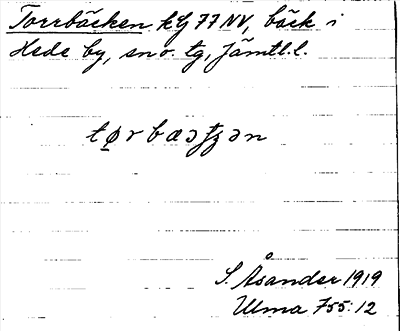 Torrbäcken kG 77 NV, bäck i
Hede by, sn o. tg, Jämtl. l.
S. Åsander 1919
Ulma 755:12